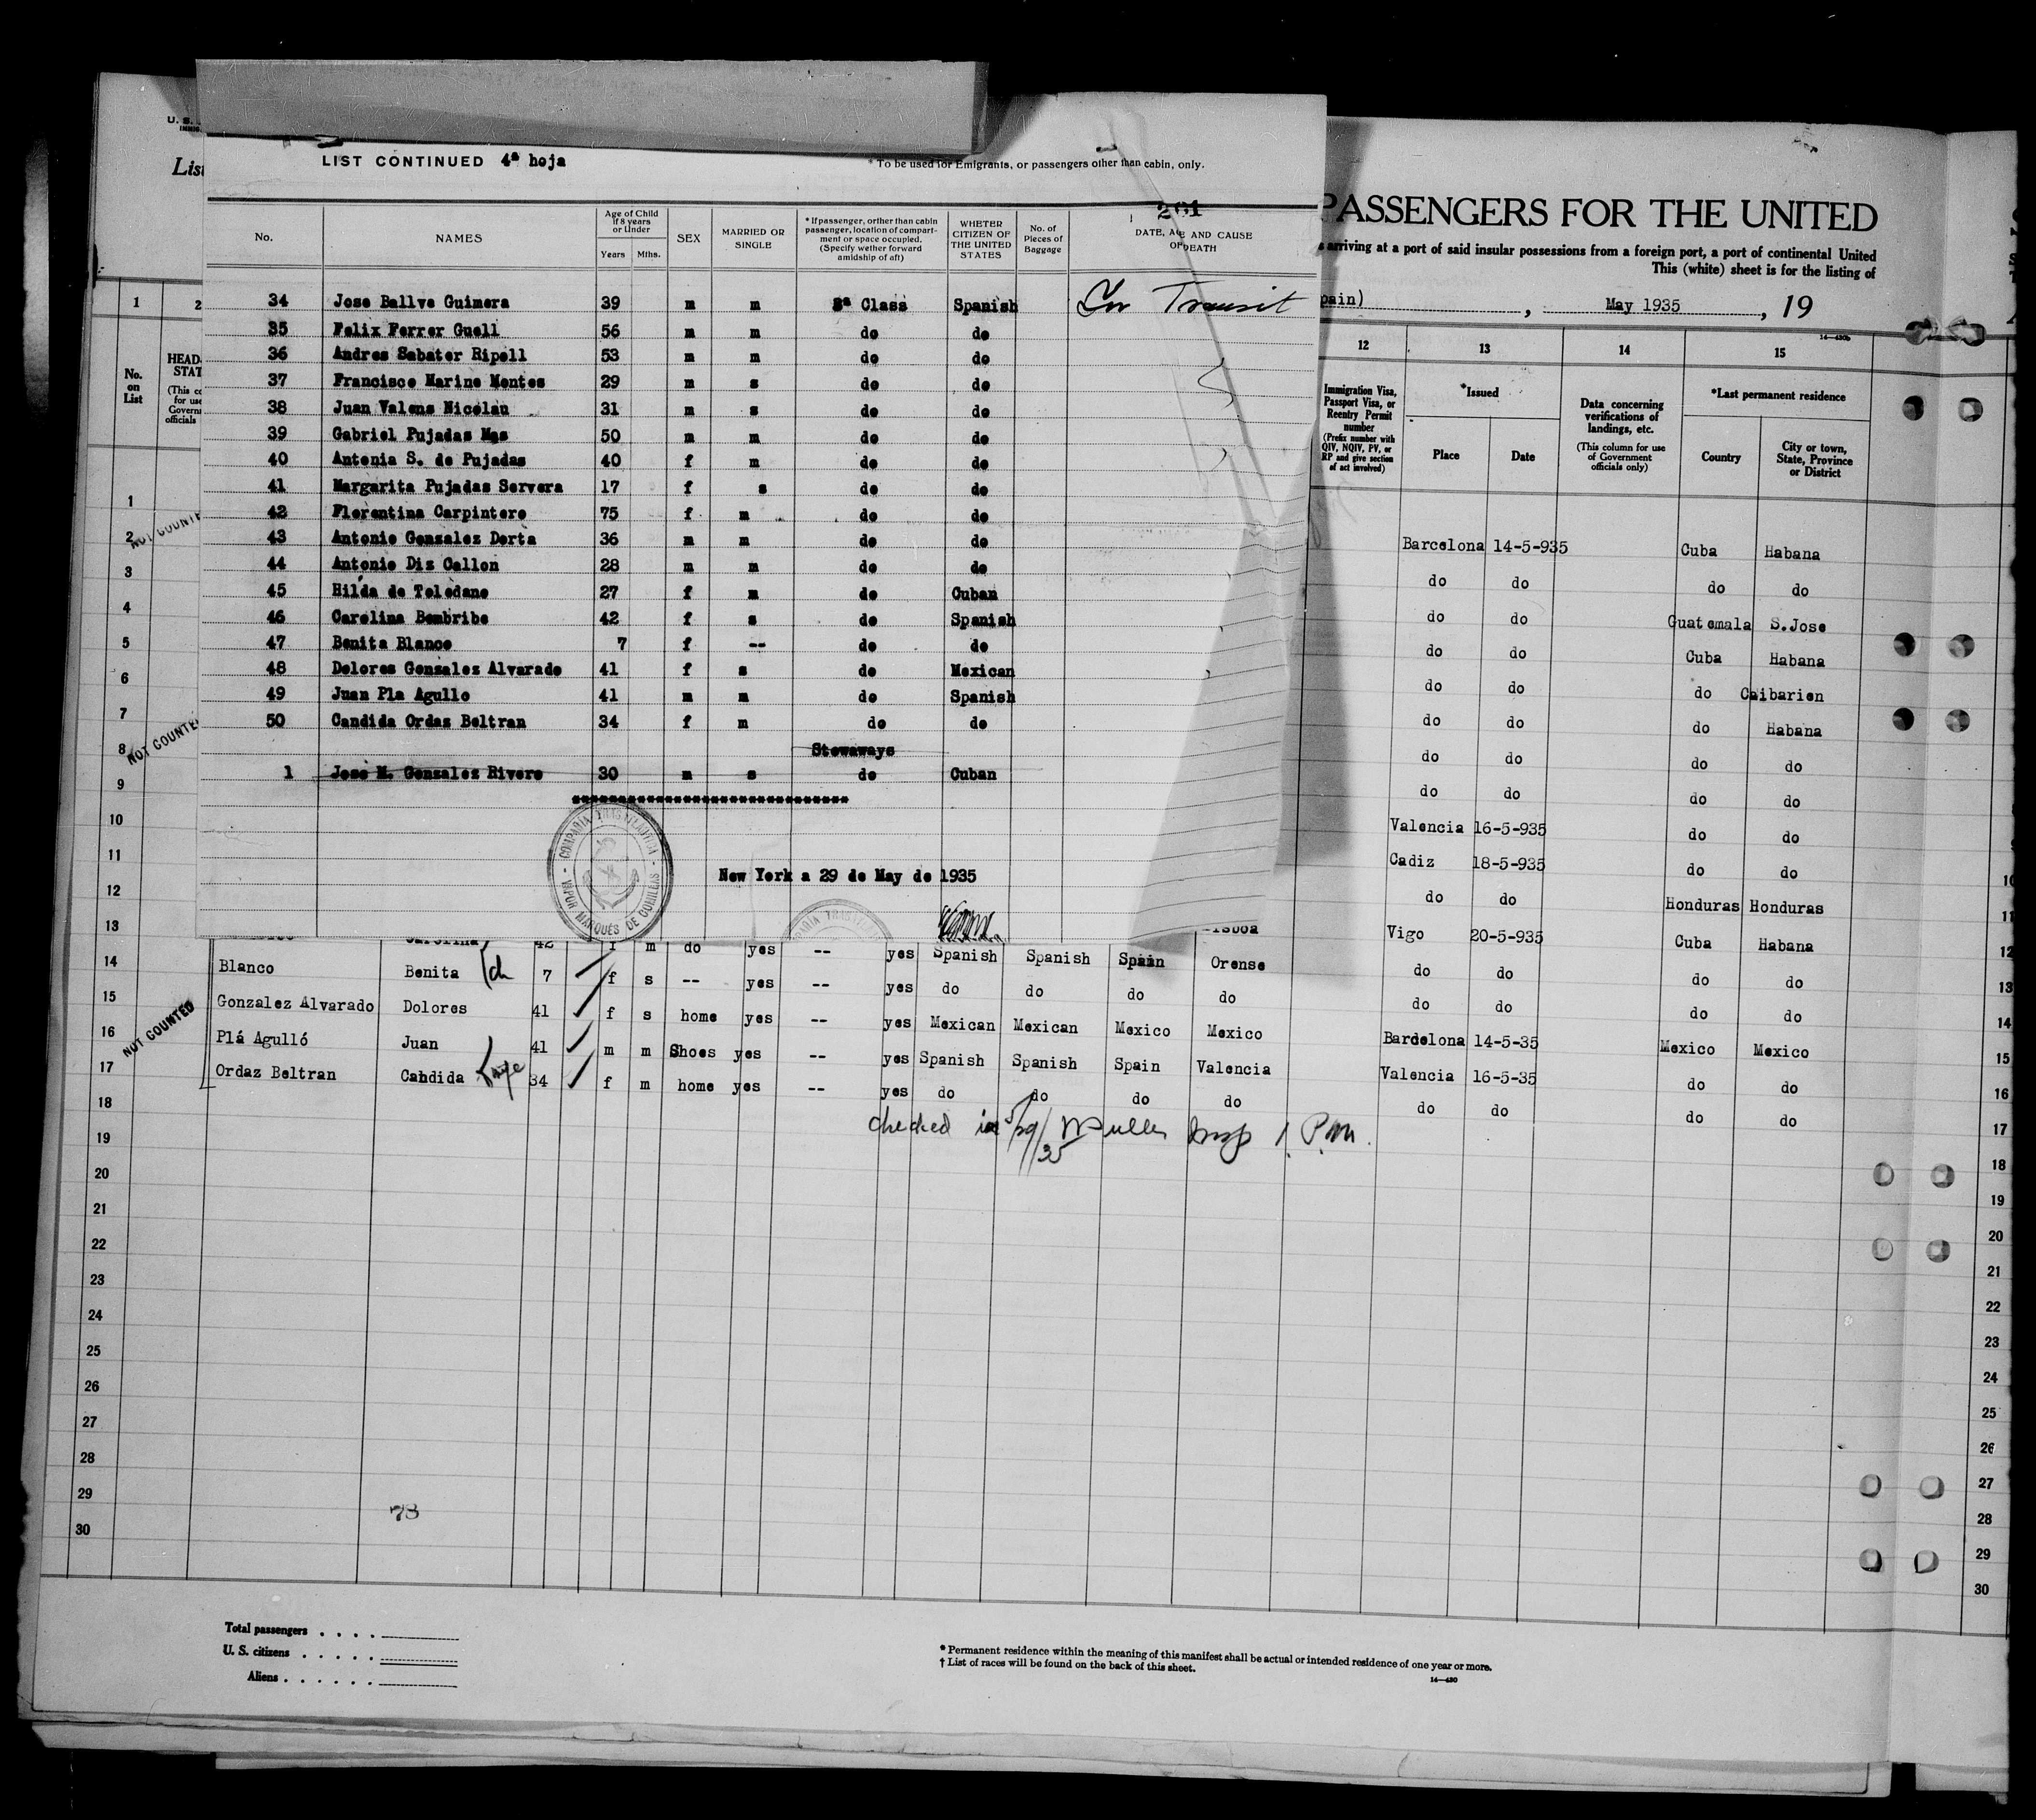 U. S.
List
LIST CONTINUED 4ª hoja
* To be used for Emigrants, or passengers other than cabin, only.
261
No.
NAMES
Age of Child if 8 years or Under
Years Mths.
SEX
MARRIED OR SINGLE
* If passenger, orther than cabin passenger, location of compartment or space occupied. (Specify wether forward amidship of aft)
WHETER CITIZEN OF THE UNITED STATES
No. of Pieces of Baggage
DATE, AGE AND CAUSE OF DEATH
34 Jose Ballve Guimera 39 m m 3ª Class Spanish In Transit
35 Felix Ferrer Guell 56 m m do do
36 Andres Sabater Ripoll 53 m m do do
37 Francisco Marine Montes 29 m s do do
38 Juan Valens Nicolau 31 m s do do
39 Gabriel Pujadas Mas 50 m m do do
40 Antonia S. de Pujadas 40 f m do do
41 Margarita Pujadas Servera 17 f s do do
42 Florentina Carpintero 75 f m do do
43 Antonio Gonzalez Dorta 36 m m do do
44 Antonio Diz Callon 28 m m do do
45 Hilda de Toledano 27 f m do Cuban
46 Carolina Bembribe 42 f s do Spanish
47 Benita Blanco 7 f -- do do
48 Dolores Gonzalez Alvarado 41 f s do Mexican
49 Juan Pla Agullo 41 m m do Spanish
50 Candida Ordas Beltran 34 f m do do
Stowaways
1 Jose M. Gonzalez Rivero 30 m s do Cuban
COMPAÑIA TRASATLANTICA - VAPOR MARQUÉS DE COMILLAS -
New York a 29 de May de 1935
PASSENGERS FOR THE UNITED
arriving at a port of said insular possessions from a foreign port, a port of continental United
This (white) sheet is for the listing of
pain) , May 1935 , 19
14—430b
1 2 12 13 14 15
No. on List
HEAD-
STAT
(This co
for use
Governm
officials
Immigration Visa, Passport Visa, or Reentry Permit number
(Prefix number with QIV, NQIV, PV, or RP and give section of act involved)
*Issued
Place Date
Data concerning verifications of landings, etc.
(This column for use of Government officials only)
*Last permanent residence
Country
City or town, State, Province or District
1 Barcelona 14-5-935 Cuba Habana
NOT COUNTE
2 do do do do
3 do do Guatemala S.Jose
4 do do Cuba Habana
5 do do do Caibarien
6 do do do Habana
7 do do do do
NOT COUNTED
8 do do do do
9 Valencia 16-5-935 do do
10 Cadiz 18-5-935 do do
11 do do Honduras Honduras
12 isboa Vigo 20-5-935 Cuba Habana
13 Carolina 42 f m do yes -- yes Spanish Spanish Spain Orense do do do do
14 Blanco Benita ch 7 f s -- yes -- yes do do do do do do do do
15 Gonzalez Alvarado Dolores 41 f s home yes -- yes Mexican Mexican Mexico Mexico Bardelona 14-5-35 Mexico Mexico
NOT COUNTED
16 Plá Agulló Juan 41 m m Shoes yes -- yes Spanish Spanish Spain Valencia Valencia 16-5-35 do do
17 Ordaz Beltran Cahdida 34 f m home yes -- yes do do do do do do do do
18
checked in 5/29/35 Insp 1 P.M.
19
20
21
22
23
24
25
26
27
28
29
78
30
10
11
12
13
14
15
16
17
18
19
20
21
22
23
24
25
26
27
28
29
30
Total passengers . . . .
U. S. citizens . . . . .
Aliens . . . . . .
* Permanent residence within the meaning of this manifest shall be actual or intended residence of one year or more.
† List of races will be found on the back of this sheet.
14—430